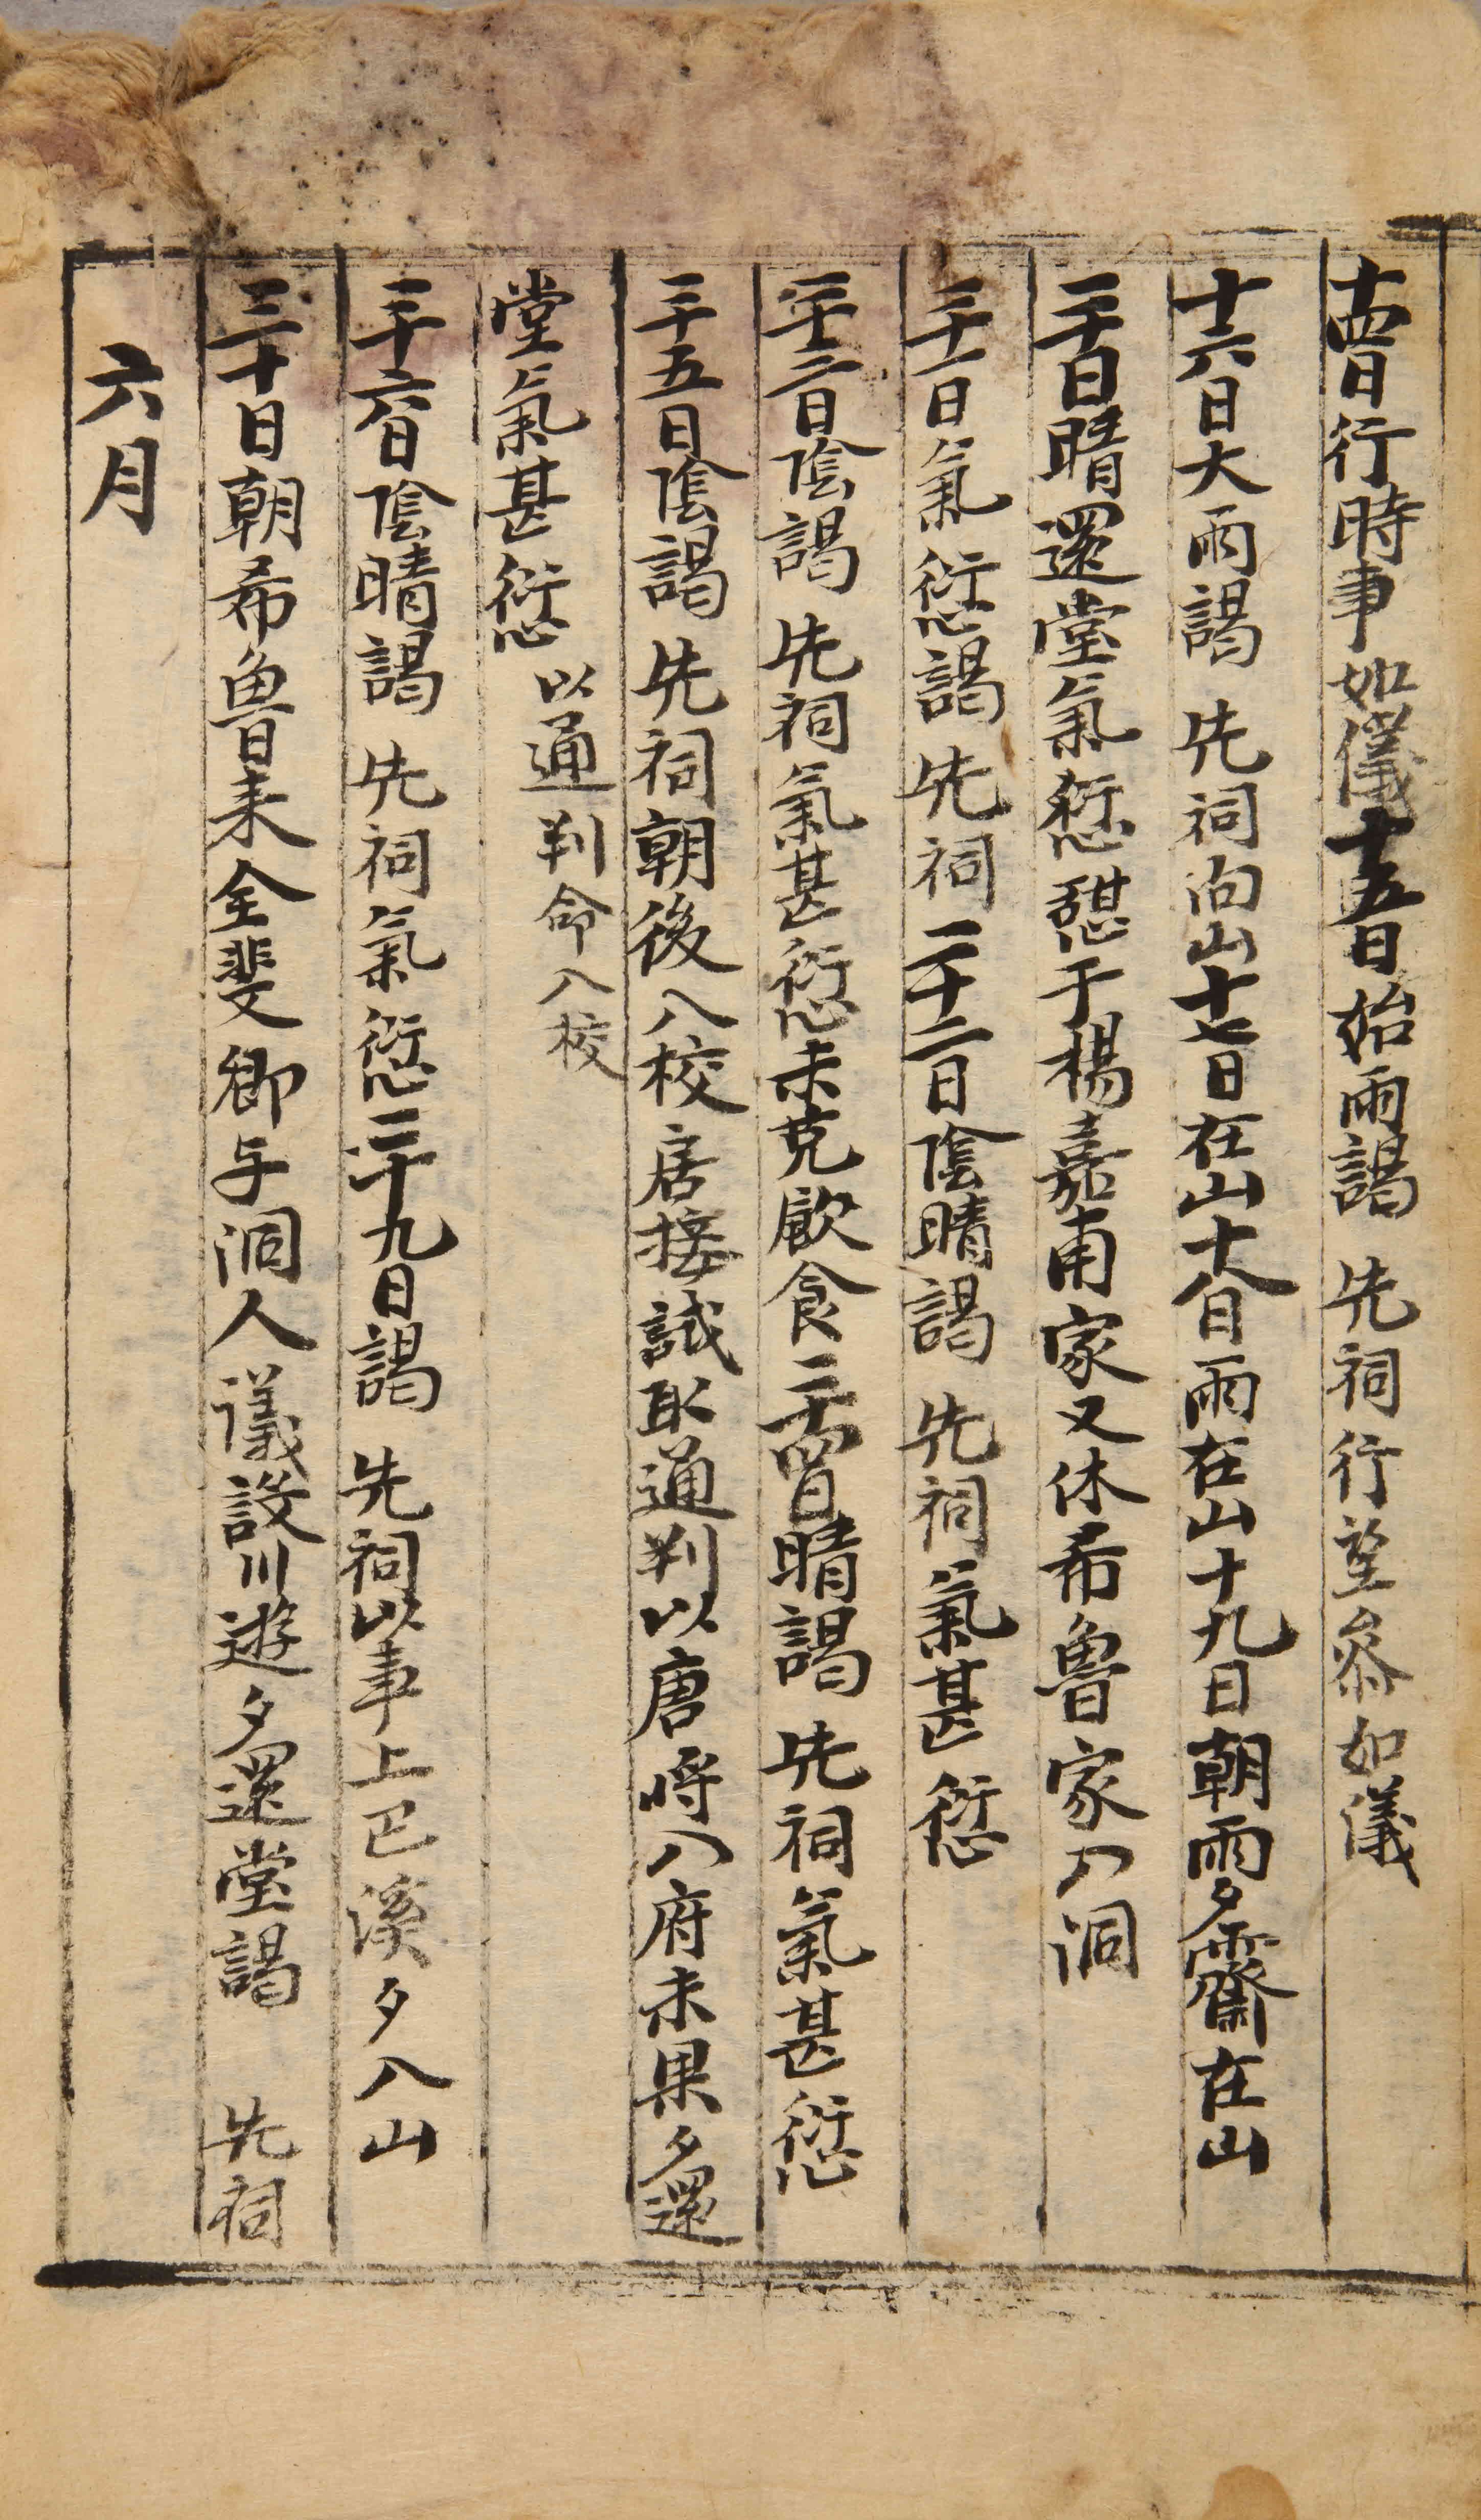 十四日行時事如儀十五日始雨謁 先祠行望參如儀
十六日大雨謁 先祠向山十七日在山十八日雨在山十九日朝雨夕霽在山
二十日晴還堂氣愆憇于楊嘉甫家又休希魯家入洞
二十一日氣愆謁 先祠二十二日陰晴謁 先祠氣甚愆
二十三日陰謁 先祠氣甚愆未克飮食二十四日晴謁 先祠氣甚愆
二十五日陰謁 先祠朝後入校居接試取通判以唐將入府未果夕還
堂氣甚愆 以通判命入校
二十六日陰晴謁 先祠氣愆二十九日謁 先祠以事上巴溪夕入山
三十日朝希魯來全斐卿与洞人議設川遊夕還堂謁 先祠
六月